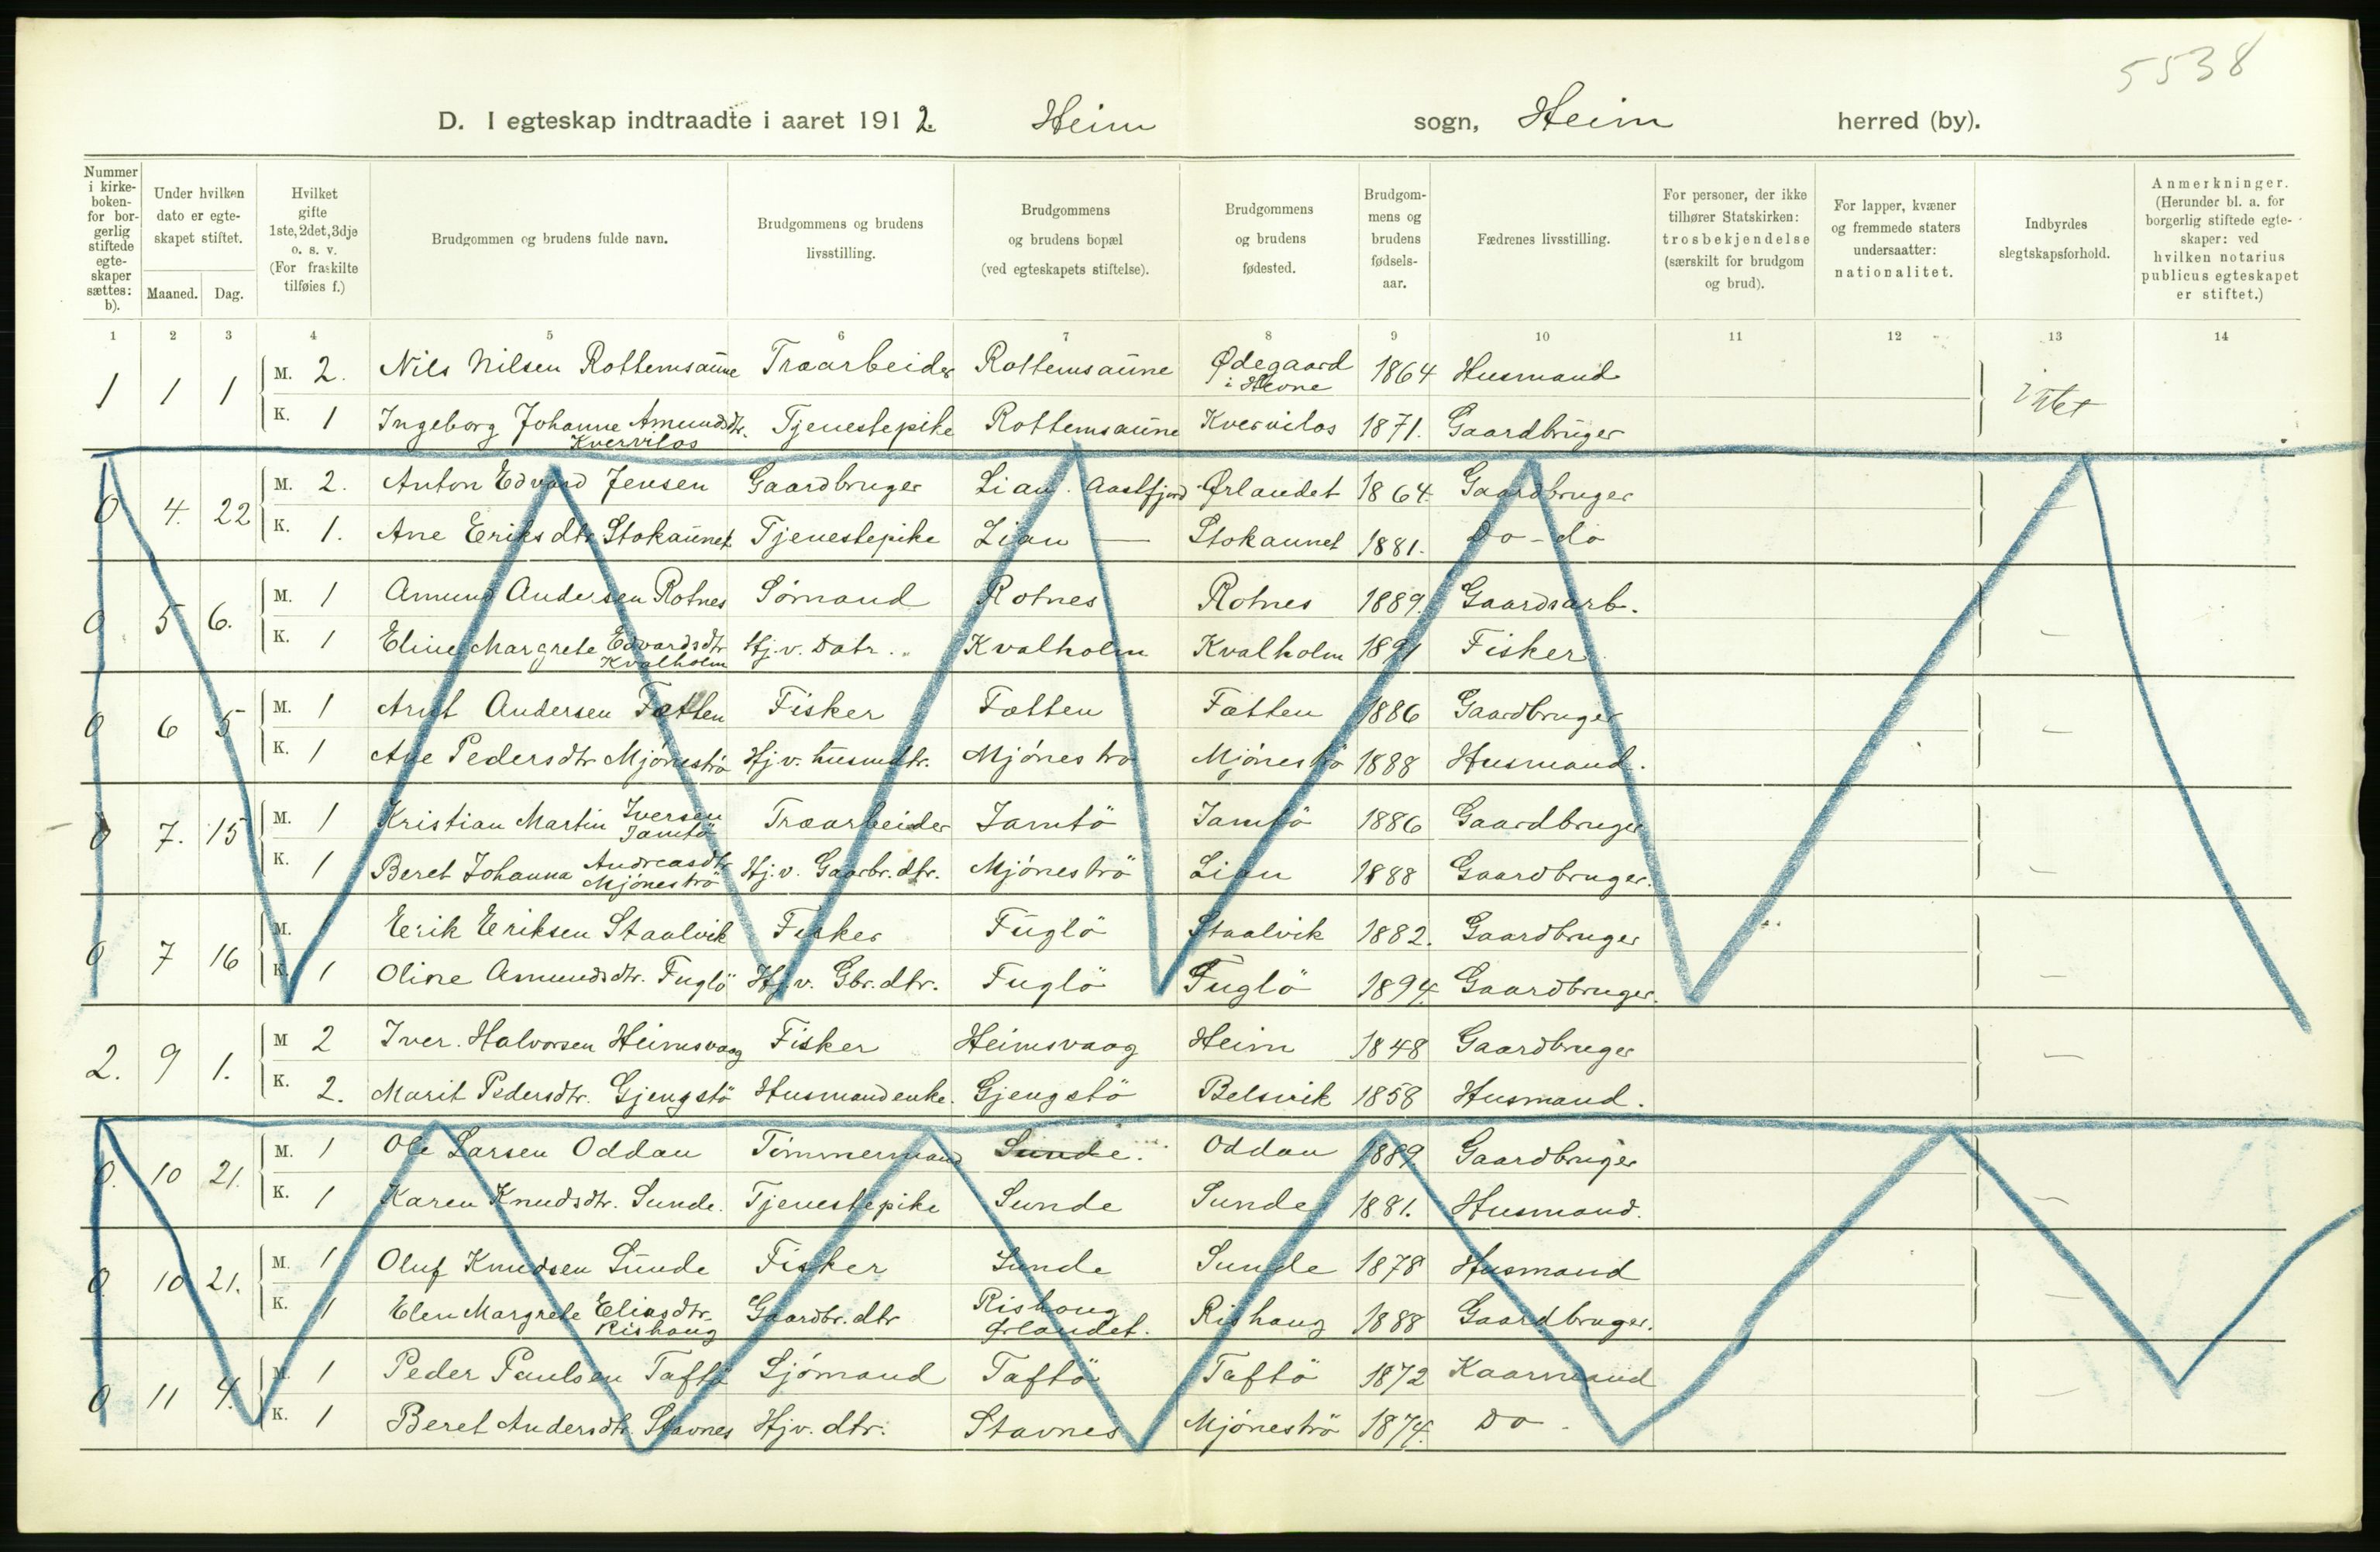 5538
D. I egteskap indtraadte i aaret 1912. Heim sogn, Heim herred (by).
Nummer i kirke-boken- for bor-gerlig stiftede egte-skaper sættes: b).
Under hvilken dato er egte-skapet stiftet.
Maaned. Dag.
Hvilket gifte 1ste, 2det, 3dje o. s. v. (For fraskilte tilføies f.)
Brudgommen og brudens fulde navn.
Brudgommens og brudens livsstilling.
Brudgommens og brudens bopæl (ved egteskapets stiftelse).
Brudgommens og brudens fødested.
Brudgom-mens og brudens fødsels-aar.
Fædrenes livsstilling.
For personer, der ikke tilhører Statskirken: trosbekjendelse (særskilt for brudgom og brud).
For lapper, kvæner og fremmede staters undersaatter: nationalitet.
Indbyrdes slegtskapsforhold.
Anmerkninger. (Herunder bl. a. for borgerlig stiftede egte-skaper: ved hvilken notarius publicus egteskapet er stiftet.)
1 2 3 4 5 6 7 8 9 10 11 12 13 14
1 1 1 M. 2. Nils Nilsen Rottemsaune Træarbeider Rottemsaune Ødegaard i Hevne 1864 Husmand intet
K. 1 Ingeborg Johanne Amundsdtr. Kvervilos Tjenestepike Rottemsaune Kvervilos 1871. Gaardbruger
0 4. 22 M. 2. Anton Edvard Jensen Gaardbruger Lian. Aastfjord Ørlandet 1864. Gaardbruger —
K. 1. Ane Eriksdtr Stokaunet Tjenestepike Lian — Stokaunet 1881. Do - do
0 5 6. M. 1 Amund Andersen Rotnes Sömand Rotnes Rotnes 1889. Gaardsarb. —
K. 1 Eline Margrete Edvardsdtr Kvalholm Hj. v. Datr. Kvalholm Kvalholm 1891 Fisker
0 6 5 M. 1 Arnt Andersen Fætten Fisker Fætten Fætten 1886 Gaardbruger —
K. 1 Ane Pedersdtr Mjöneströ Hj. v. husmdtr. Mjöneströ Mjöneströ 1888 Husmand.
0 7. 15 M. 1 Kristian Martin Iversen Jamtö Træarbeider Jamtö Jamtö 1886 Gaardbruger —
K. 1 Beret Johanna Andreasdtr Mjöneströ Hj. v. Gaarbr. dtr. Mjöneströ Lian 1888 Gaardbruger.
0 7 16 M. Erik Eriksen Staalvik Fisker Fuglö Staalvik 1882. Gaardbruger —
K. 1 Oline Amundsdtr. Fuglö Hj. v. Gbr. dtr. Fuglö Fuglö 1894. Gaardbruger.
2. 9 1. M 2 Iver. Halvorsen Heimsvaag Fisker Heimsvaag Heim 1848 Gaardbruger —
K. 2. Marit Pedersdtr. Gjengstö Husmandenke. Gjengstö Belsvik 1858 Husmand.
0. 10 21. M. 1 Ole Larsen Oddan Tömmermand Sunde. Oddan 1889. Gaardbruger —
K. 1 Karen Knudsdtr. Sunde. Tjenestepike Sunde Sunde 1881. Husmand.
0 10 21. M. 1 Oluf Knudsen Sunde Fisker Sunde Sunde 1878 Husmand —
K. 1 Elen Margrete Eliasdtr. Rishaug Gaardbr. dtr Rishaug Ørlandet. Rishaug 1888 Gaardbruger.
0 11 4. M. 1 Peder Paulsen Taftö Sjömand Taftö Taftö 1872 Kaarmand —
K. 1 Beret Andersdtr. Stavnes Hjv. dtr. Stavnes Mjöneströ 1874. Do -